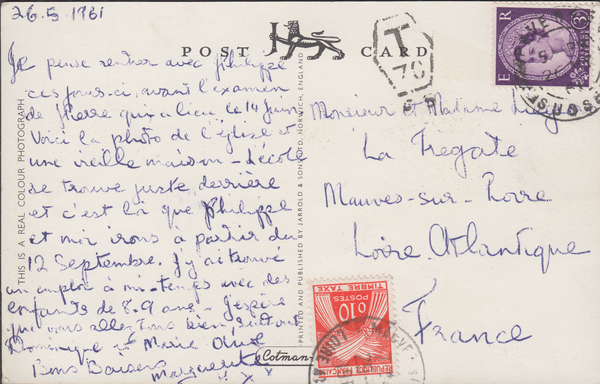 26.5 1961
POST CARD
Je pense rentrer avec Philippe
ces jours-ci, avant l'examen
de Pierre qui a lieu le 14 juin
Voici la photo de l'église et
une vieille maison - L'école
se trouve juste derrière
et c'est là que Philippe
et moi irons à partir du
12 Septembre. J'y ai trouvé
un emploi à mi-temps avec des
enfants de 8.9 ans - J'espère
que vous allez tous bien surtout
Dominique et Marie
Bons Baisers
Marguerite
X X
THIS IS A REAL COLOUR PHOTOGRAPH
PRINTED AND PUBLISHED BY JARROLD & SONS LTD, NORWICH, ENGLAND
Cotman
T
70
G B
E R
3D
Monsieur et Madame
La Frégate
Mauves-sur-Loire
Loire Atlantique
France
0,10
POSTES
TIMBRE TAXE